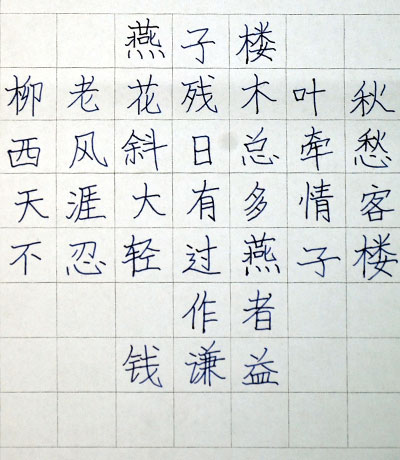 燕子楼
柳老花残木叶秋
西风斜日总牵愁
天涯大有多情客
不忍轻过燕子楼
作者
钱谦益